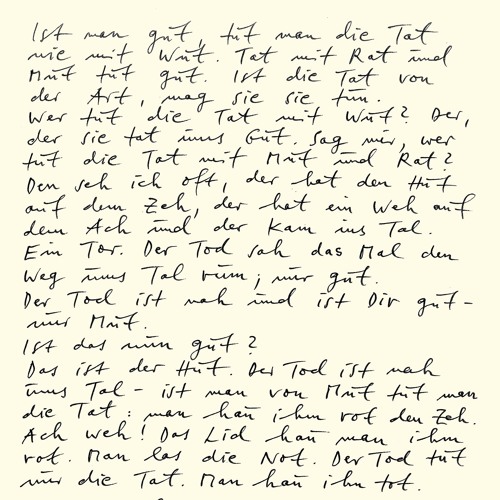 Ist man gut, tut man die Tat
nie mit Wut. Tat mit Rat und
Mut tut gut. Ist die Tat von
der Art, mag sie sie tun.
Wer tut die Tat mit Wut? Der,
der sie tat ums Gut. Sag mir, wer
tut die Tat mit Mut und Rat?
Den seh ich oft, der hat den Hut
auf dem Zeh, der hat ein Weh auf
dem Ach und der kam ins Tal.
Ein Tor. Der Tod sah das Mal den
Weg ums Tal rum; nur gut.
Der Tod ist nah und ist Dir gut-
nur Mut.
Ist das nun gut?
Das ist der Hut. Der Tod ist nah
ums Tal - ist man von Mut tut man
die Tat: man hau ihm rot den Zeh.
Ach weh! Das Lid hau man ihm
rot. Man las die Not. Der Tod tut
nur die Tat. Man hau ihn tot.